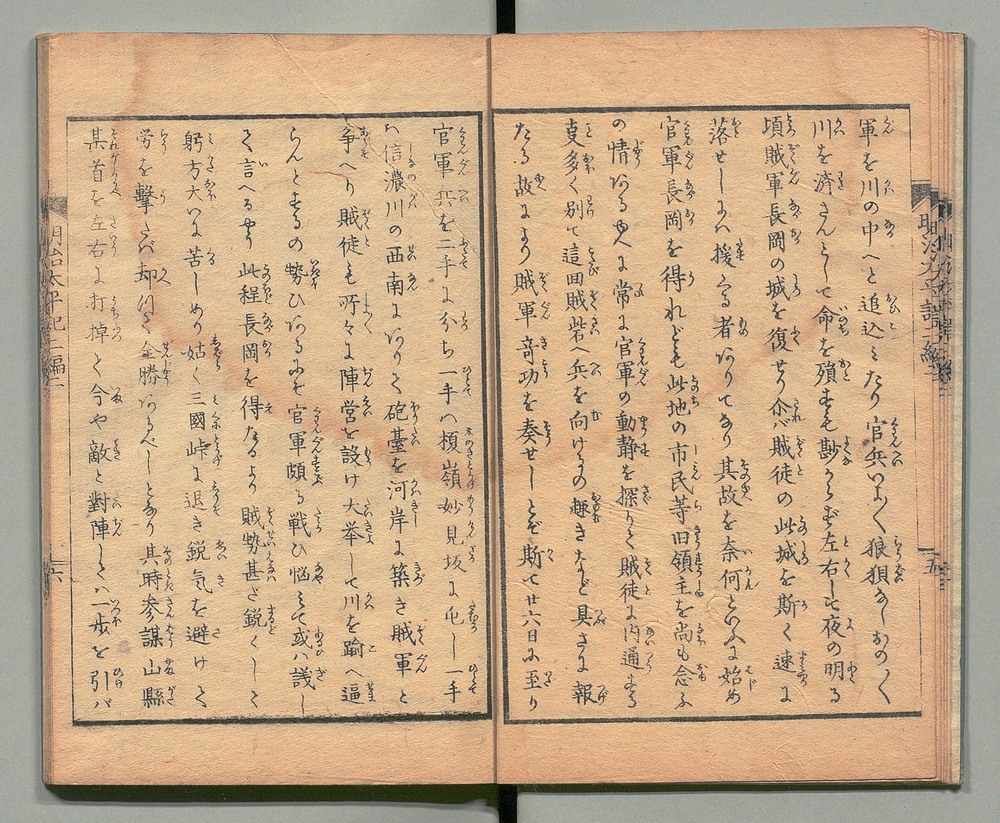 軍を川の中へと追込ミたり官兵いよく狼狽なしおのく
川を済さんとして命を殞すも尠からず左右して夜の明る
頃賊軍長岡の城を復せり尒バ賊徒の此城を斯く速に
落せしハ援る者ありてなり其故を奈何といふに始め
官軍長岡を得れども此地の市民等旧領主を尚も念ふ
の情あるゆへに常に官軍の動静を探りて賊徒に内通する
支多く別て這回賊砦へ兵を向けるの趣きなど具さに報
たる故により賊軍奇功を奏せしとぞ斯て廿六日に至り
官軍兵を二手に分ち一手ハ榎嶺妙見坂に屯し一手
ハ信濃川の西南にありて砲臺を河岸に築き賊軍と
争へり賊徒も所々に陣営を設け大挙して川を踰へ逼
らんとするの勢ひあるにぞ官軍頗る戦ひ悩ミて或ハ議し
て言へるやう此程長岡を得たるより賊勢甚ざ鋭くして
躬方大いに苦しめり姑く三國峠に退き鋭気を避けて
労を撃たバ却つて全勝あるべしとあり其時参謀山縣
某首を左右に打掉て今や敵と對陣してハ一歩を引バ
明治太平記二編二
五
六